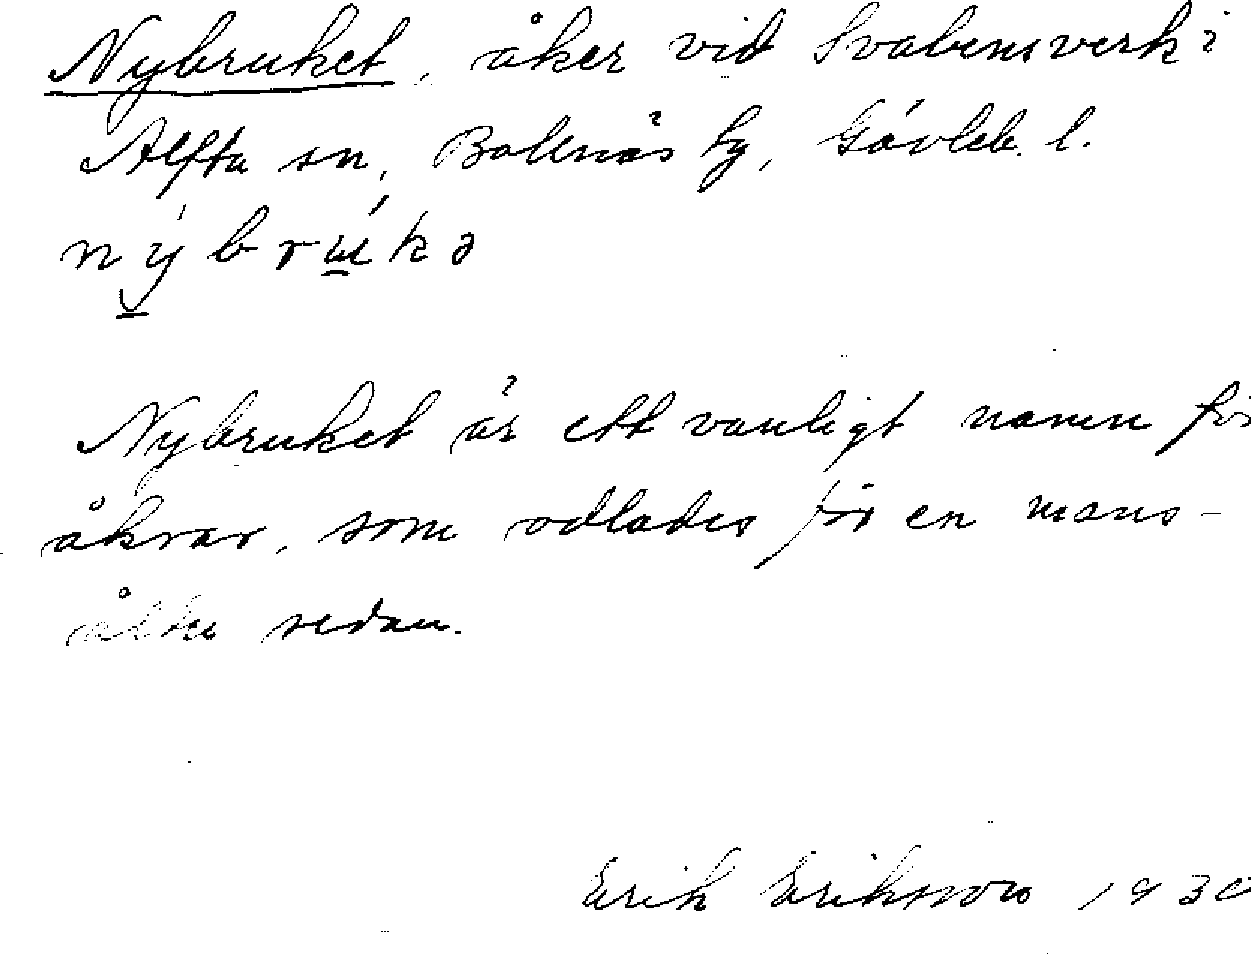 Nybruket, åker vid Svabensverk i
Alfta sn, Bollnäs tg, Gävleb. l.
nybrukə
Nybruket är ett vanligt namn för
åkrar, som odlades för en mans-
ålder sedan.
Erik Eriksson 1930